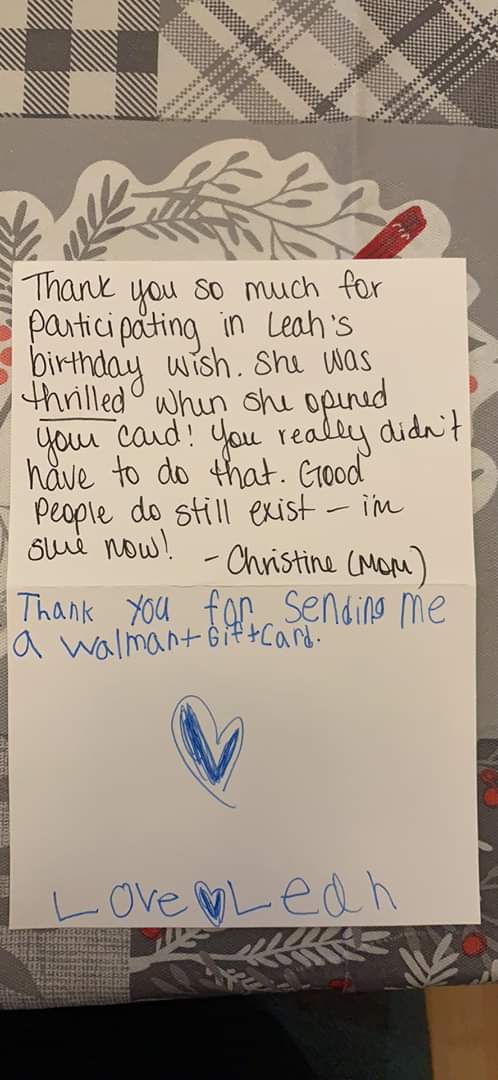 Thank you so much for
participating in Leah's
birthday wish. She was
thrilled when she opened
your card! You really didn't
have to do that. Good
people do still exist – i'm
sure now! - Christine (Mom)
Thank you for sending me
a Walmart GiftCard.
Love Leah